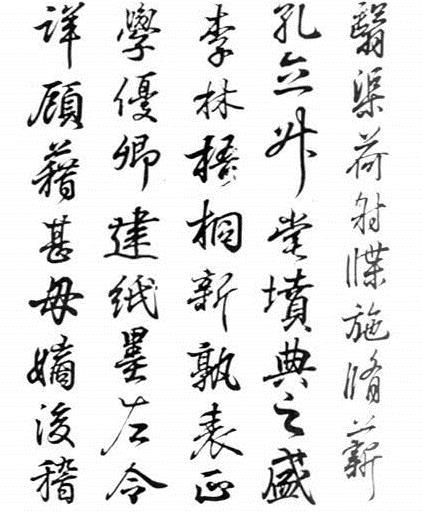 翳渠荷射牒施脩薪
孔立升堂墳典之盛
李林梧桐新孰表正
學優卿建紙墨左令
詳顧藉甚母嫡後稽